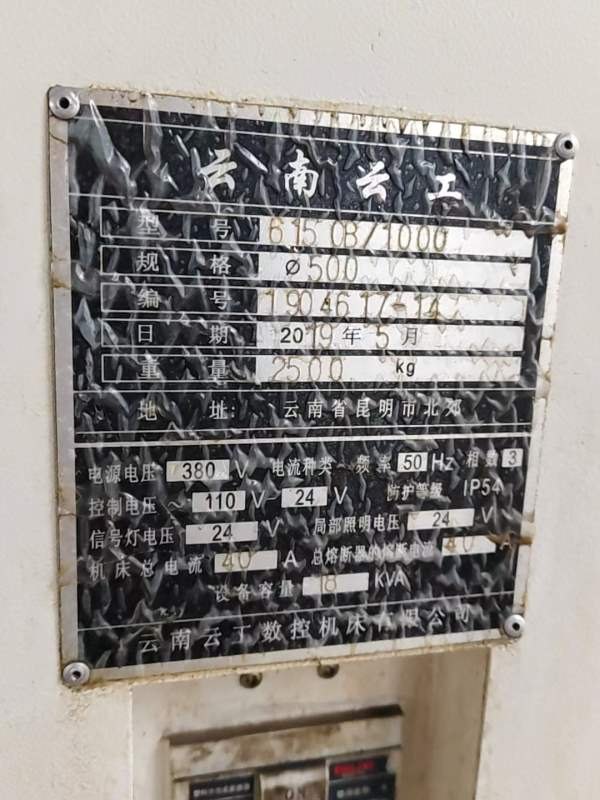 云南云工
型号 6150B/1000
规格 ø500
编号 1904617-14
日期 2019年5月
重量 2500 kg
地址: 云南省昆明市北郊
电源电压 380 V 电流种类~ 频率 50 Hz 相数 3
控制电压~ 110 V~ 24 V 防护等级 IP54
信号灯电压 24 V 局部照明电压 24 V
机床总电流 40 A 总熔断器的熔断电流 40 A
设备容量 18 KVA
云南云工数控机床有限公司
ON